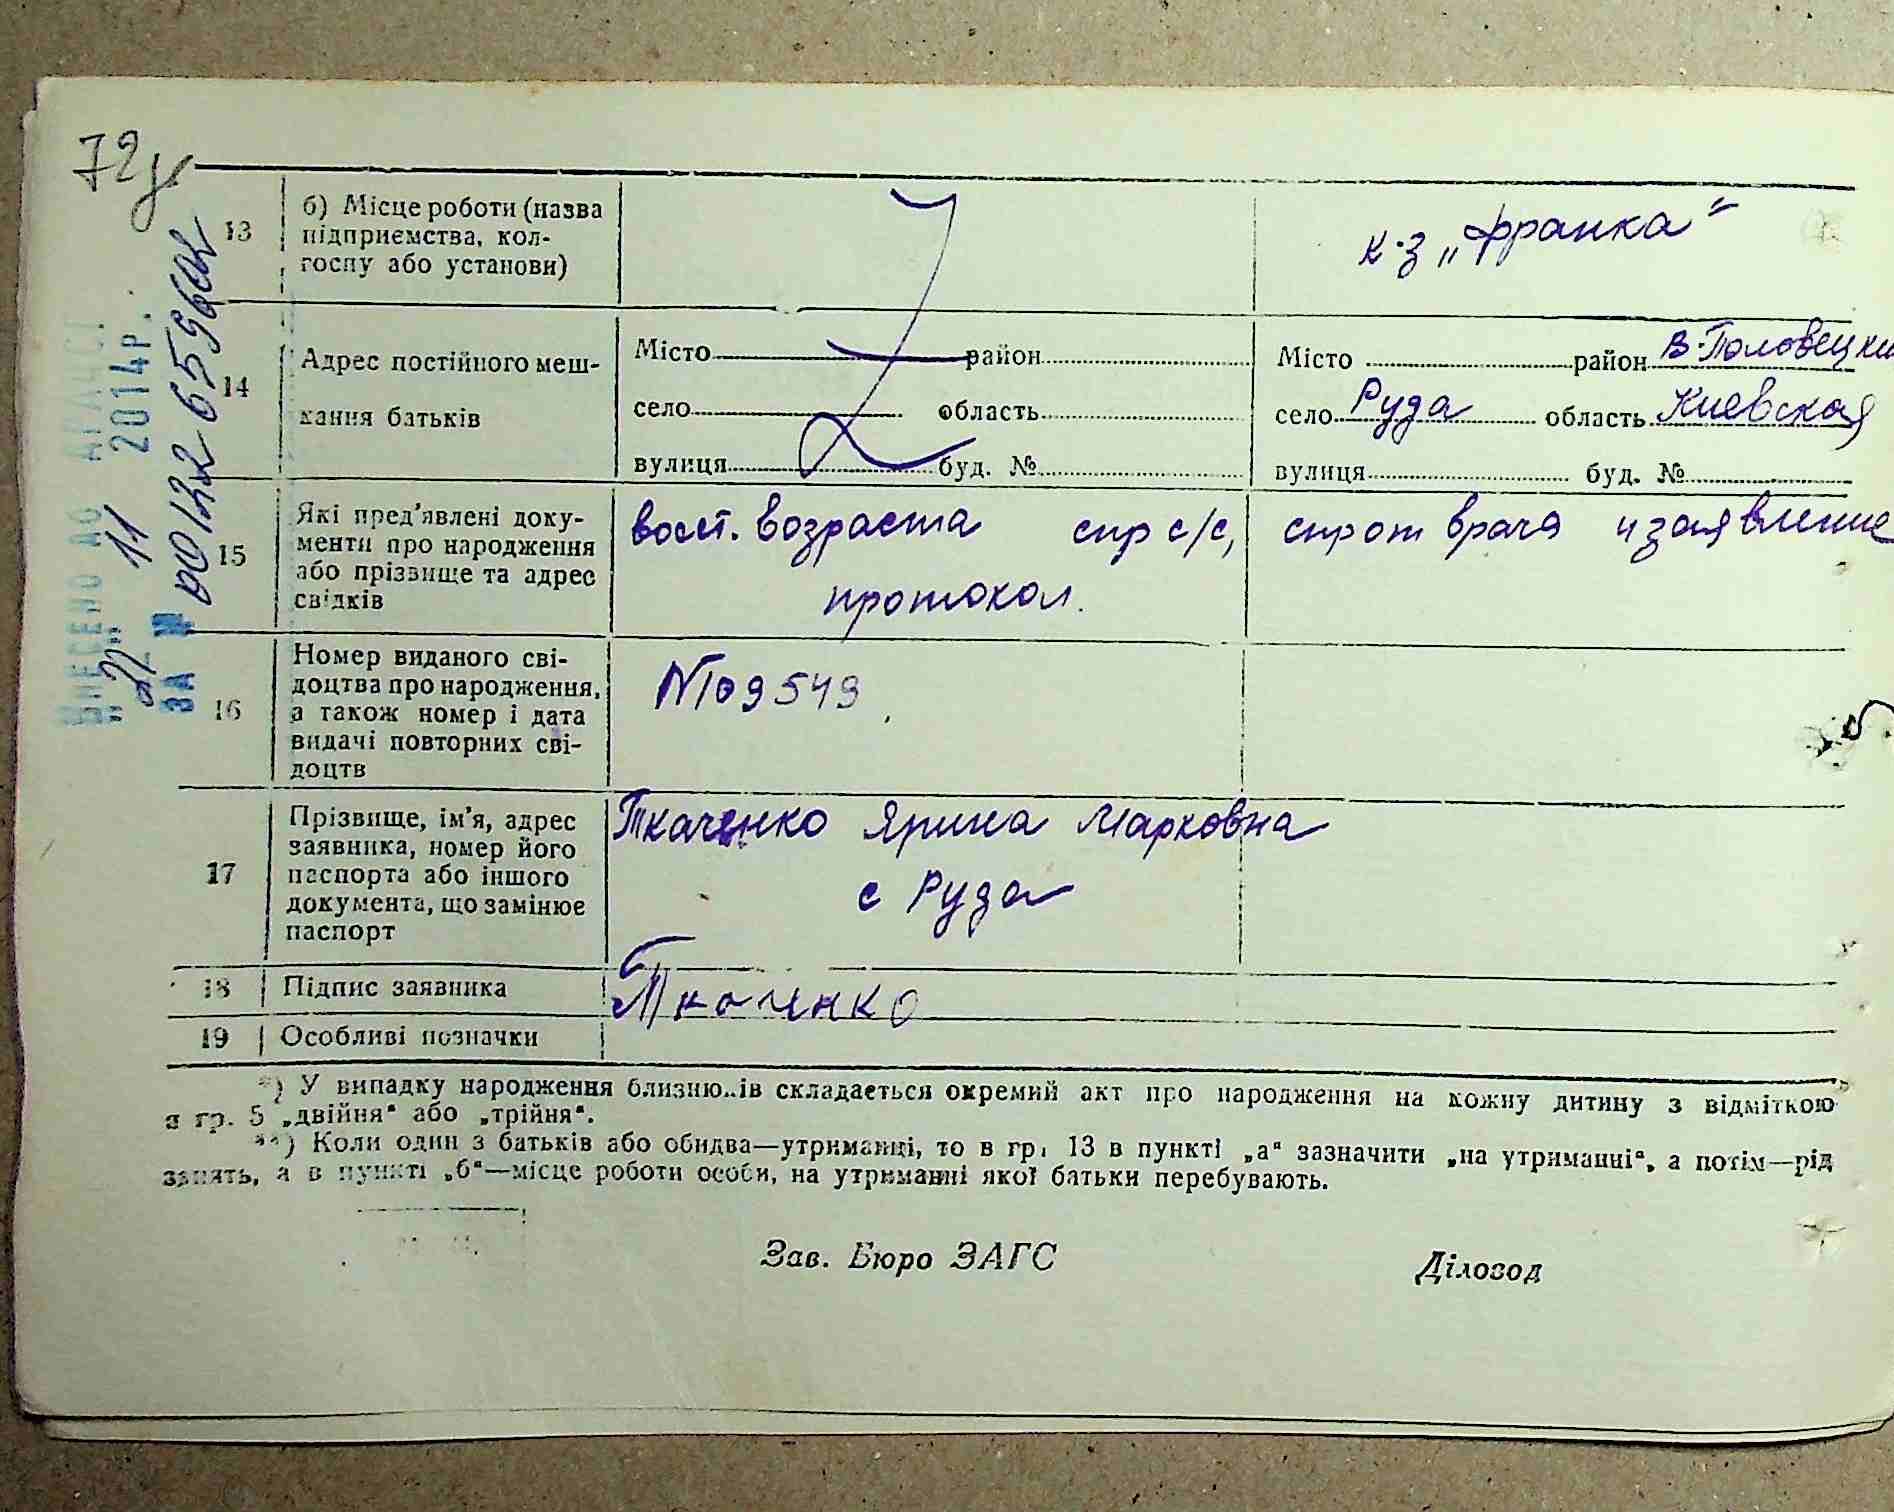 72
13 б) Місце роботи (назва підприємства, колгоспу або установи) к-з „Франка“
14 Адрес постійного мешкання батьків
Місто район Місто район В-Половецки
село область село Руда область Киевская
вулиця буд. № вулиця буд. №
15 Які пред’явлені документи про народження або прізвище та адрес свідків
восст. возраста спр с/с, спр от врача и заявление
протокол.
16 Номер виданого свідоцтва про народження, а також номер і дата видачі повторних свідоцтв
№ 109549
17 Прізвище, ім’я, адрес заявника, номер його паспорта або іншого документа, що замінює паспорт
Ткаченко Ярина Марковна
с Руда
18 Підпис заявника Ткаченко
19 Особливі позначки
*) У випадку народження близню..ів складається окремий акт про народження на кожну дитину з відміткою
в гр. 5 „двійня“ або „трійня“.
**) Коли один з батьків або обидва—утриманці, то в гр. 13 в пункті „а“ зазначити „на утриманні“, а потім—рід
занять, а в пункті „б“—місце роботи особи, на утриманні якої батьки перебувають.
Зав. Бюро ЗАГС Діловод
ВНЕСЕНО ДО ДРАЦСГ
11 2014р.
ЗА № 00122659602